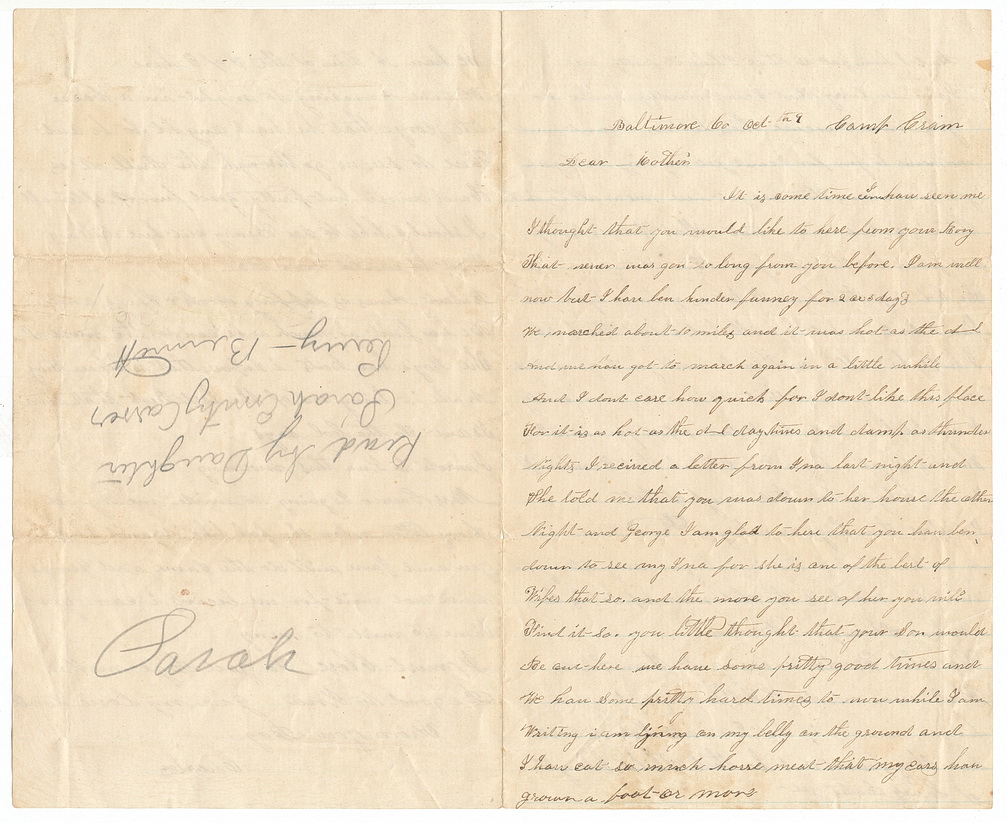 Baltimore Co Oct th 9 Camp Crain
Dear Mother
It is some time I haw seen me
I thought that you would like to here from your Boy
That never was gon so long from you before. I am well
now but I have ben kinder funney for 2 or 3 days
We marched about 10 miles and it was hot as the d l
And we hav got to march again in a little while
And I dont care how quick for I dont like this place
For it is as hot as the d l day times and damp as thunder
Nights I recived a letter from Ina last night and
She told me that you was down to her house the other
Night and George I am glad to here that you hav ben
down to see my Ina for she is one of the best of
Wifes that so. and the more you see of her you will
Find it so. you little thought that your Son would
Be out here we have some pritty good times and
We hav some pritty hard times to now while I am
Writing i am lying on my belly on the ground and
I hav eat so much horse meat that my ears hav
grown a foot or more
Read by Daughter
Sarah Emity Carver
Penny - Bennett
Sarah